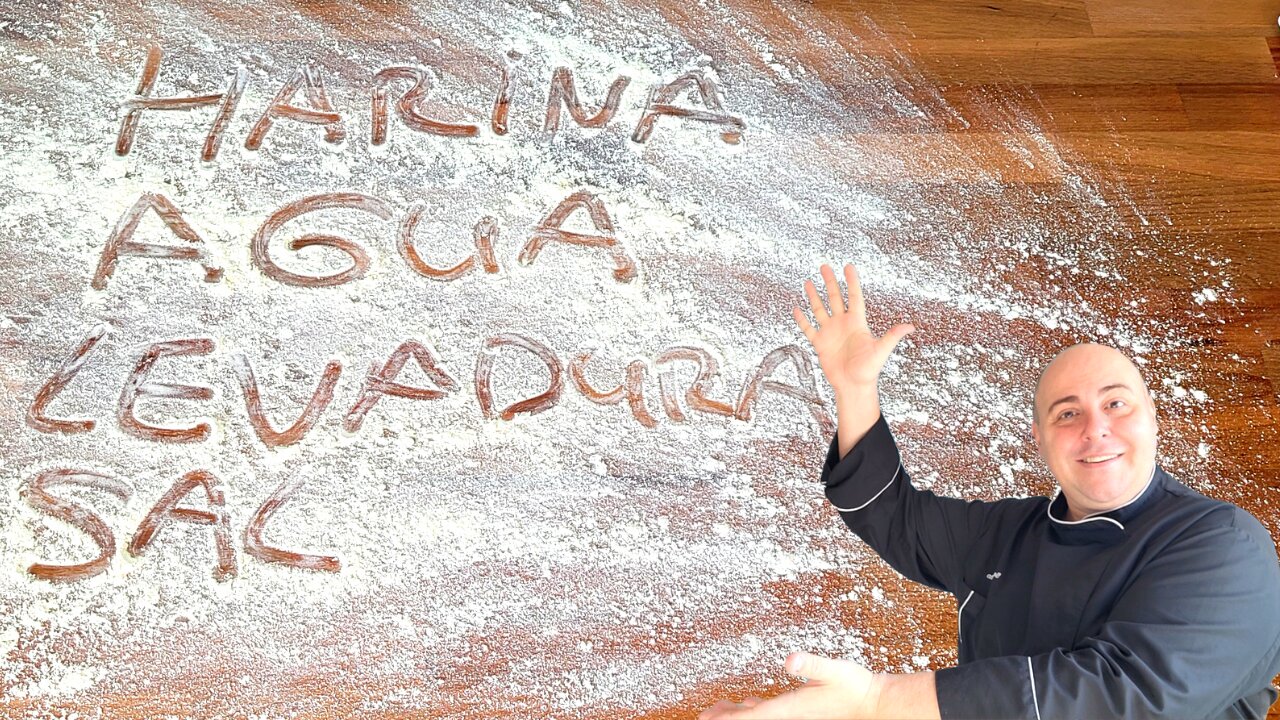 HARINA
AGUA
LEVADURA
SAL